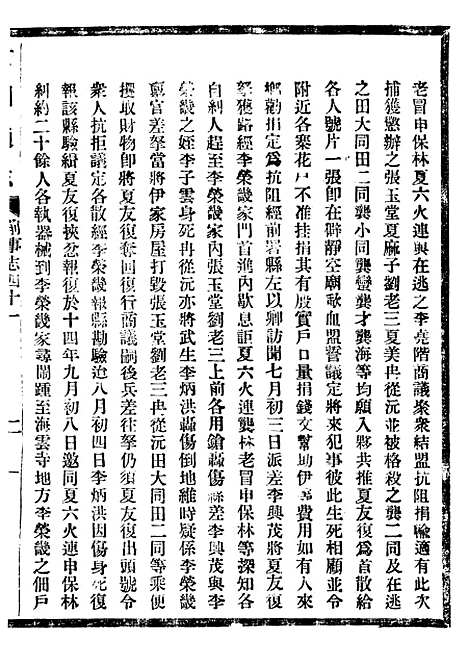 老冒申保林夏六火連與在逃之李堯階商議棄衆結盟抗阻捐輸適有此次
捕獲懲辦之張玉堂夏麻子劉老三夏美冉從沅並被格殺之龔二同及在逃
之田大同田二同龔小同龔巒龔才龔海等均願入夥共推夏友復爲首散給
各人號片一張卽在僻靜空廟歃血盟誓議定將來犯事彼此生死相顧並令
附近各寨花戶不准挂捐其有殷實戶口量捐錢文幫助伊等費用如有人來
鄉勸捐定爲抗阻經前署縣左以卿訪聞七月初三日派差李興茂將夏友復
拏獲路經李榮畿家門首進內歇息詎夏六火連龔老冒申保林等深知各
自糾人趕至李榮畿家內張玉堂劉老三上前各用鎗轟傷縣差李興茂與李
榮畿之姪李子雲身死冉從沅亦將武生李炳洪轟傷倒地維時疑係李榮畿
稟官差拏當將伊家房屋打毀張玉堂劉老三冉從沅田大同田二同等乘便
攫取財物卽將夏友復奪回復行商議嗣後兵差往拏仍須夏友復出頭號令
衆人抗拒議定各散經李榮畿報縣勘驗迨八月初四日李炳洪因傷身死復
報該縣驗緝夏友復挾忿報復於十四年九月初八日邀同夏六火連申保林
糾約二十餘人各執器械到李榮畿家尋鬧踵至海雲寺地方李榮畿之佃戶
前事志四十一